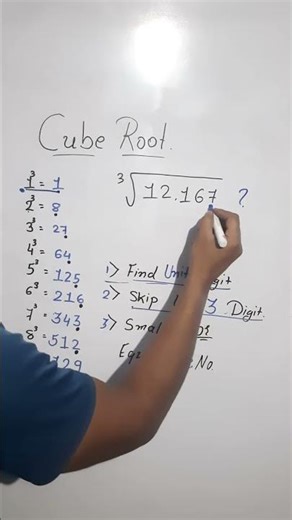 Cube Root.
∛12.167 ?
1³ = 1
2³ = 8
3³ = 27
4³ = 64
5³ = 125
6³ = 216
7³ = 343
8³ = 512
729
1> Find Unit Digit
2> Skip 3 Digit.
3> Smal
No.